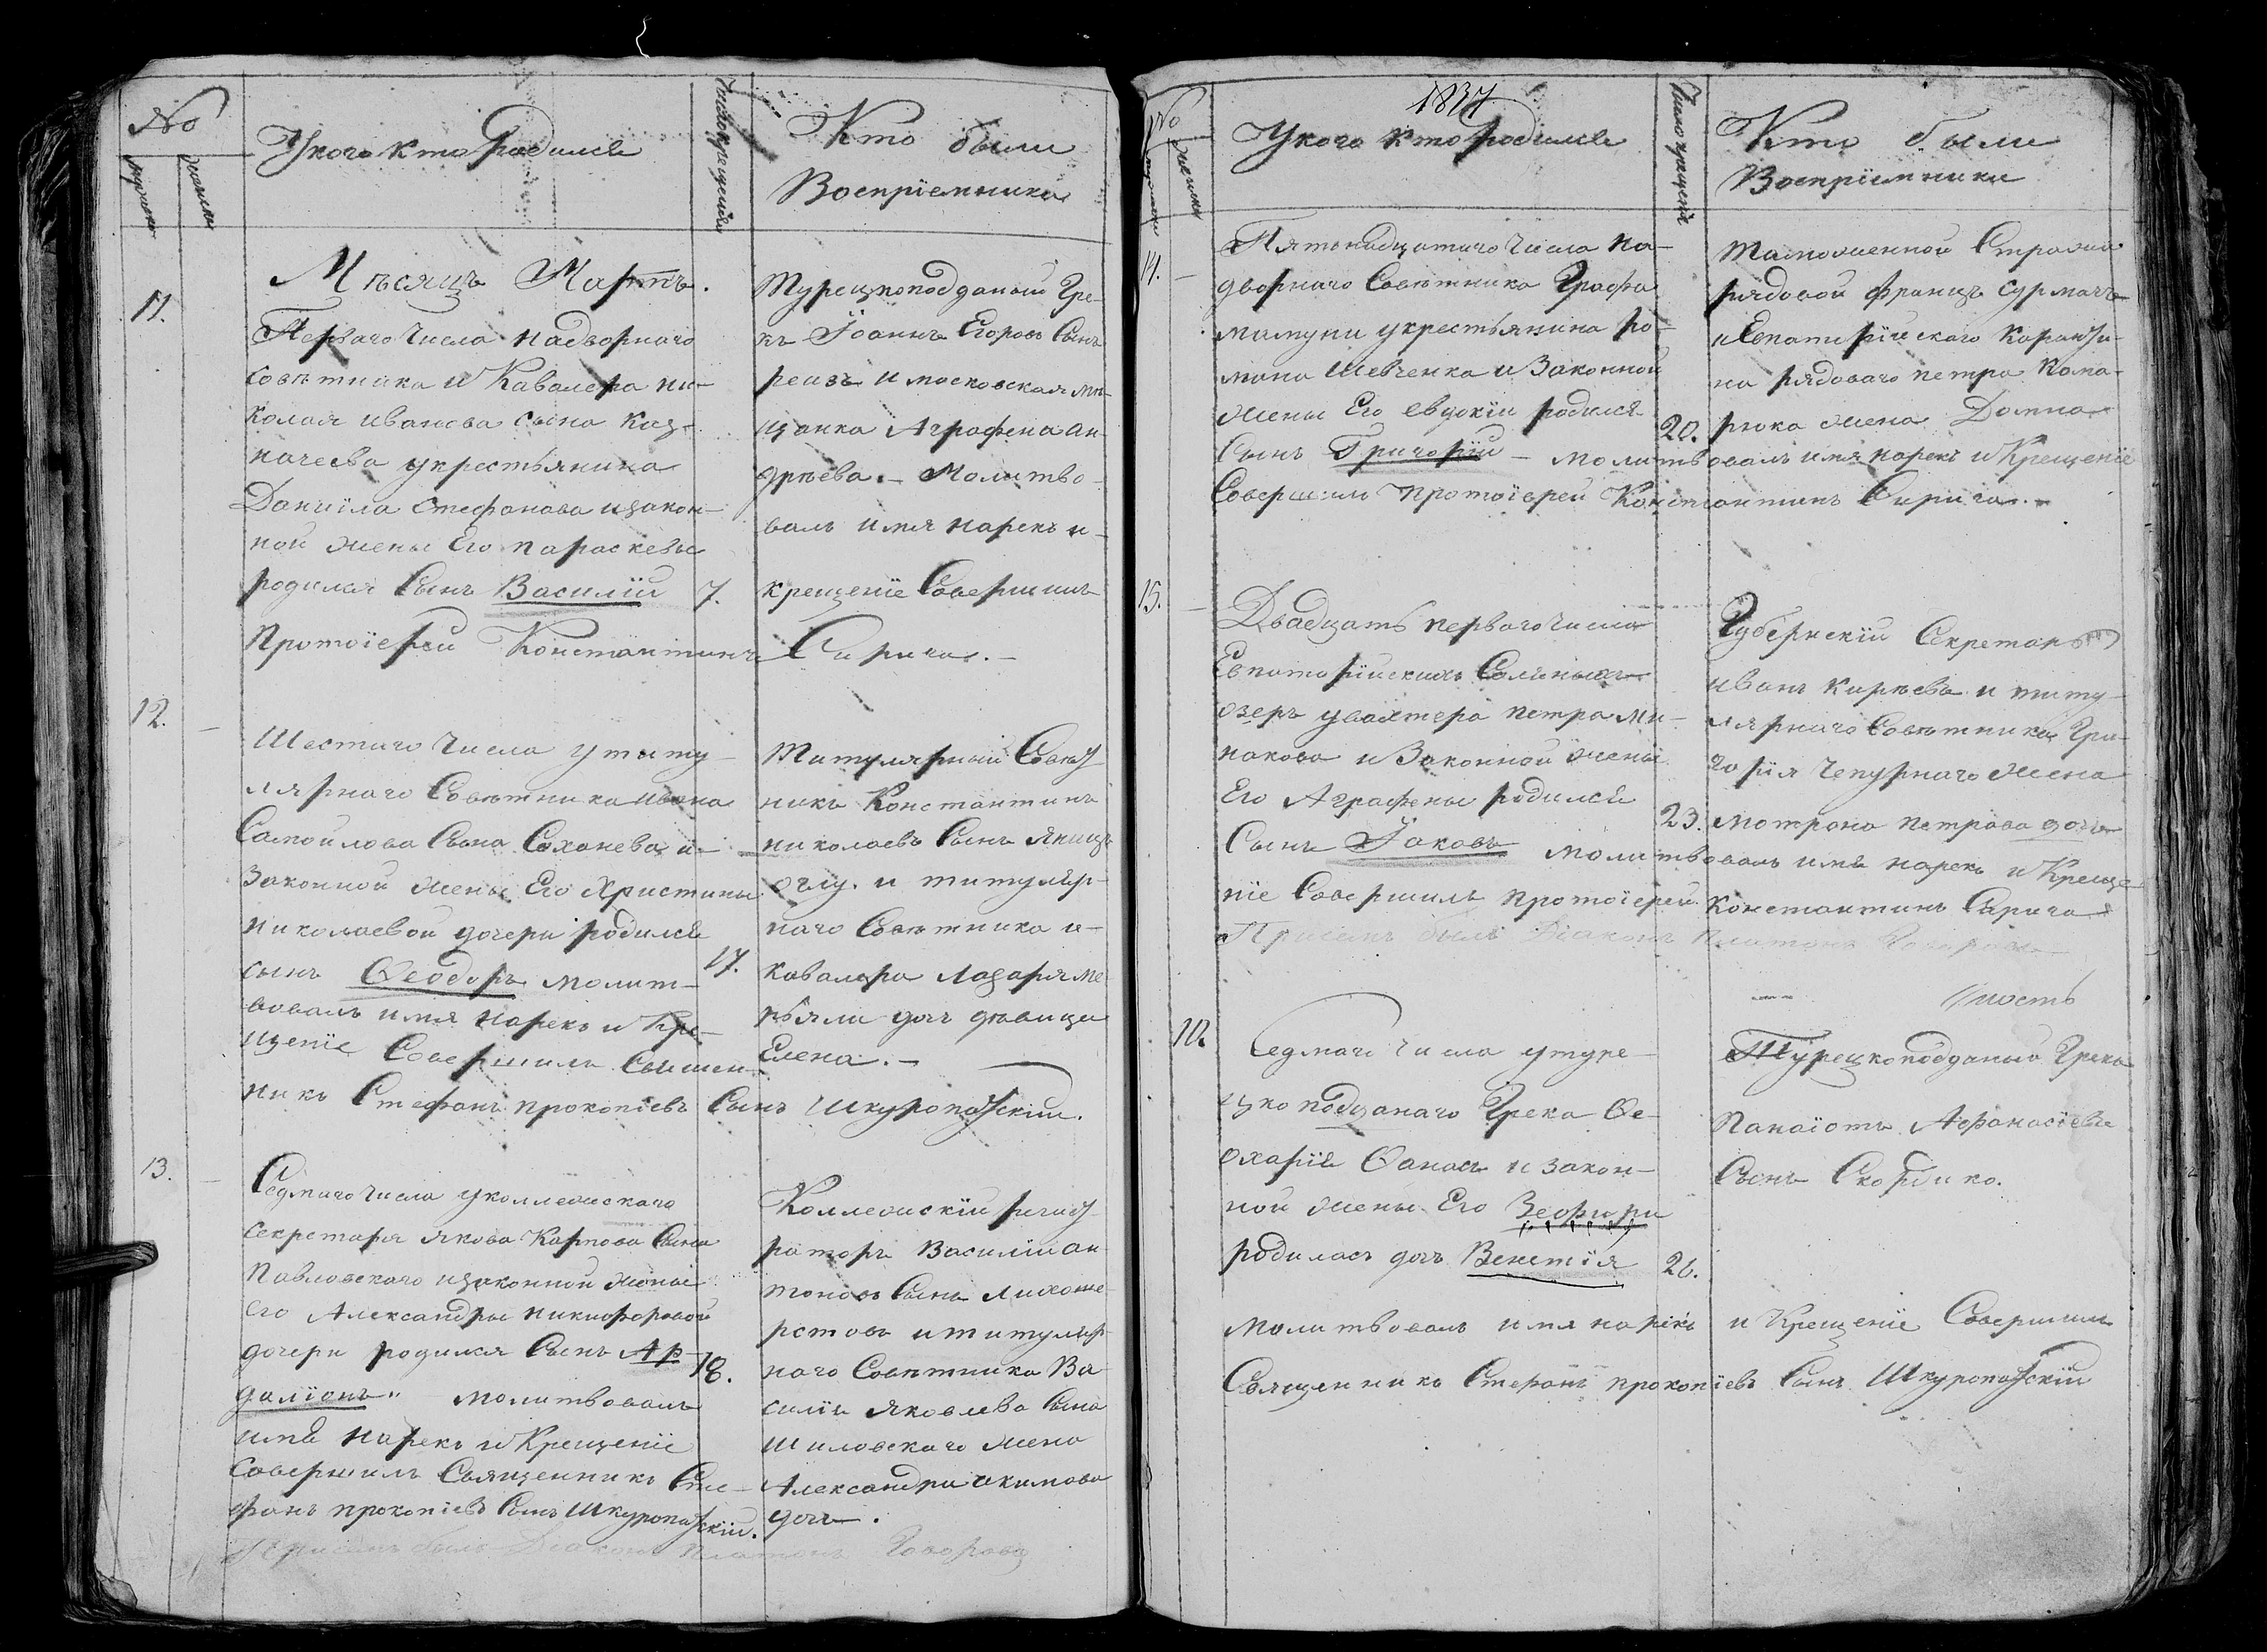 No
У кого кто родился
Число крещенія
Кто были
Воспріемники
11.
Мѣсяцъ Мартъ.
Перваго числа надворнаго
совѣтника и Кавалера ни-
колая иванова сына Каз-
начеева у крестьянина
Даніила Стефанова и закон-
ной жены Его параскевы
родился Сынъ Василій
7.
Протоіерей Константинъ Сирича.
Турецкоподданый Гре-
къ Іоаннъ Егоровъ Сынъ
и московская мѣ-
щанка Аграфена ан-
дрѣева. – Молитво-
валъ имя нарекъ и
крещеніе Совершилъ
12.
Шестаго числа у титу-
лярнаго Совѣтника ивана
Самойлова Сына Соханева и
Законной жены Его Христины
николаевой дочери родился
сынъ Ѳеодоръ молит-
вовалъ имя нарекъ и Кре-
щеніе Совершилъ Священ-
никъ Стефанъ прокопіевъ Сынъ Шкуропатскій.
17.
Титулярный Совѣт
никъ Константинъ
николаевъ Сынъ
оглу. и титуляр-
наго Совѣтника и
кавалера Лазаря Ме
дочь дѣвица
Елена. –
13.
Седмаго числа у коллежскаго
Секретаря якова Карпова Сына
Павловскаго и законной жены
его Александры никифоровой
дочери родился Сынъ Ар-
даліонъ" молитвовалъ
имя нарекъ и Крещеніе
совершилъ Священникъ Сте-
фанъ прокопіевъ Сынъ Шкуропатскій.
18.
Коллежскій регист
раторъ Василій ан
тоновъ Сынъ Лихоше
рстовъ и титуляр-
наго Совѣтника Ва
силія яковлева Сына
Шиловскаго жена
Александра акимова
дочь.
При семъ былъ Діаконъ Платонъ
1837
No
У кого кто родился
Число крещенія
Кто были
Воспріемники
14.
Пятьнадцатаго числа на-
дворнаго Совѣтника Графа
мамуни у крестьянина ро-
мана Шевченка и Законной
жены Его Евдокіи родился
Сынъ Григорій – молитвовалъ имя нарекъ и Крещеніе
Совершилъ Протоіерей Константинъ Сирича. –
20.
Таможенной Стражи
рядовой францъ Сурмачъ
и Евпаторійскаго Каранти-
на рядоваго петра
жена Домна
15.
Двадцать перваго числа
Евпаторійскихъ Соляныхъ
озеръ у вахтера петра Ми-
накова и Законной жены
Его Аграфены родился
Сынъ Іаковъ молитвовалъ имя нарекъ и Креще-
ніе Совершилъ протоіерей Константинъ Сирича
При семъ былъ Діаконъ Платонъ
23.
Губернскій Секретарь
иванъ Кирѣевъ и титу-
лярнаго Совѣтника Гри-
горія Чепурнаго жена
мотрона петрова дочь
Седмаго числа у туре-
цкоподданаго Грека Ѳе-
охарія Ѳанасъ и закон-
ной жены Его Зеофири
родилась дочь Венетія
26.
Турецкоподданый Грекъ
Панаіотъ Афанасіевъ
Сынъ Скордико.
молитвовалъ имя нарекъ и Крещеніе Совершилъ
Священникъ Стефанъ прокопіевъ Сынъ Шкуропатскій